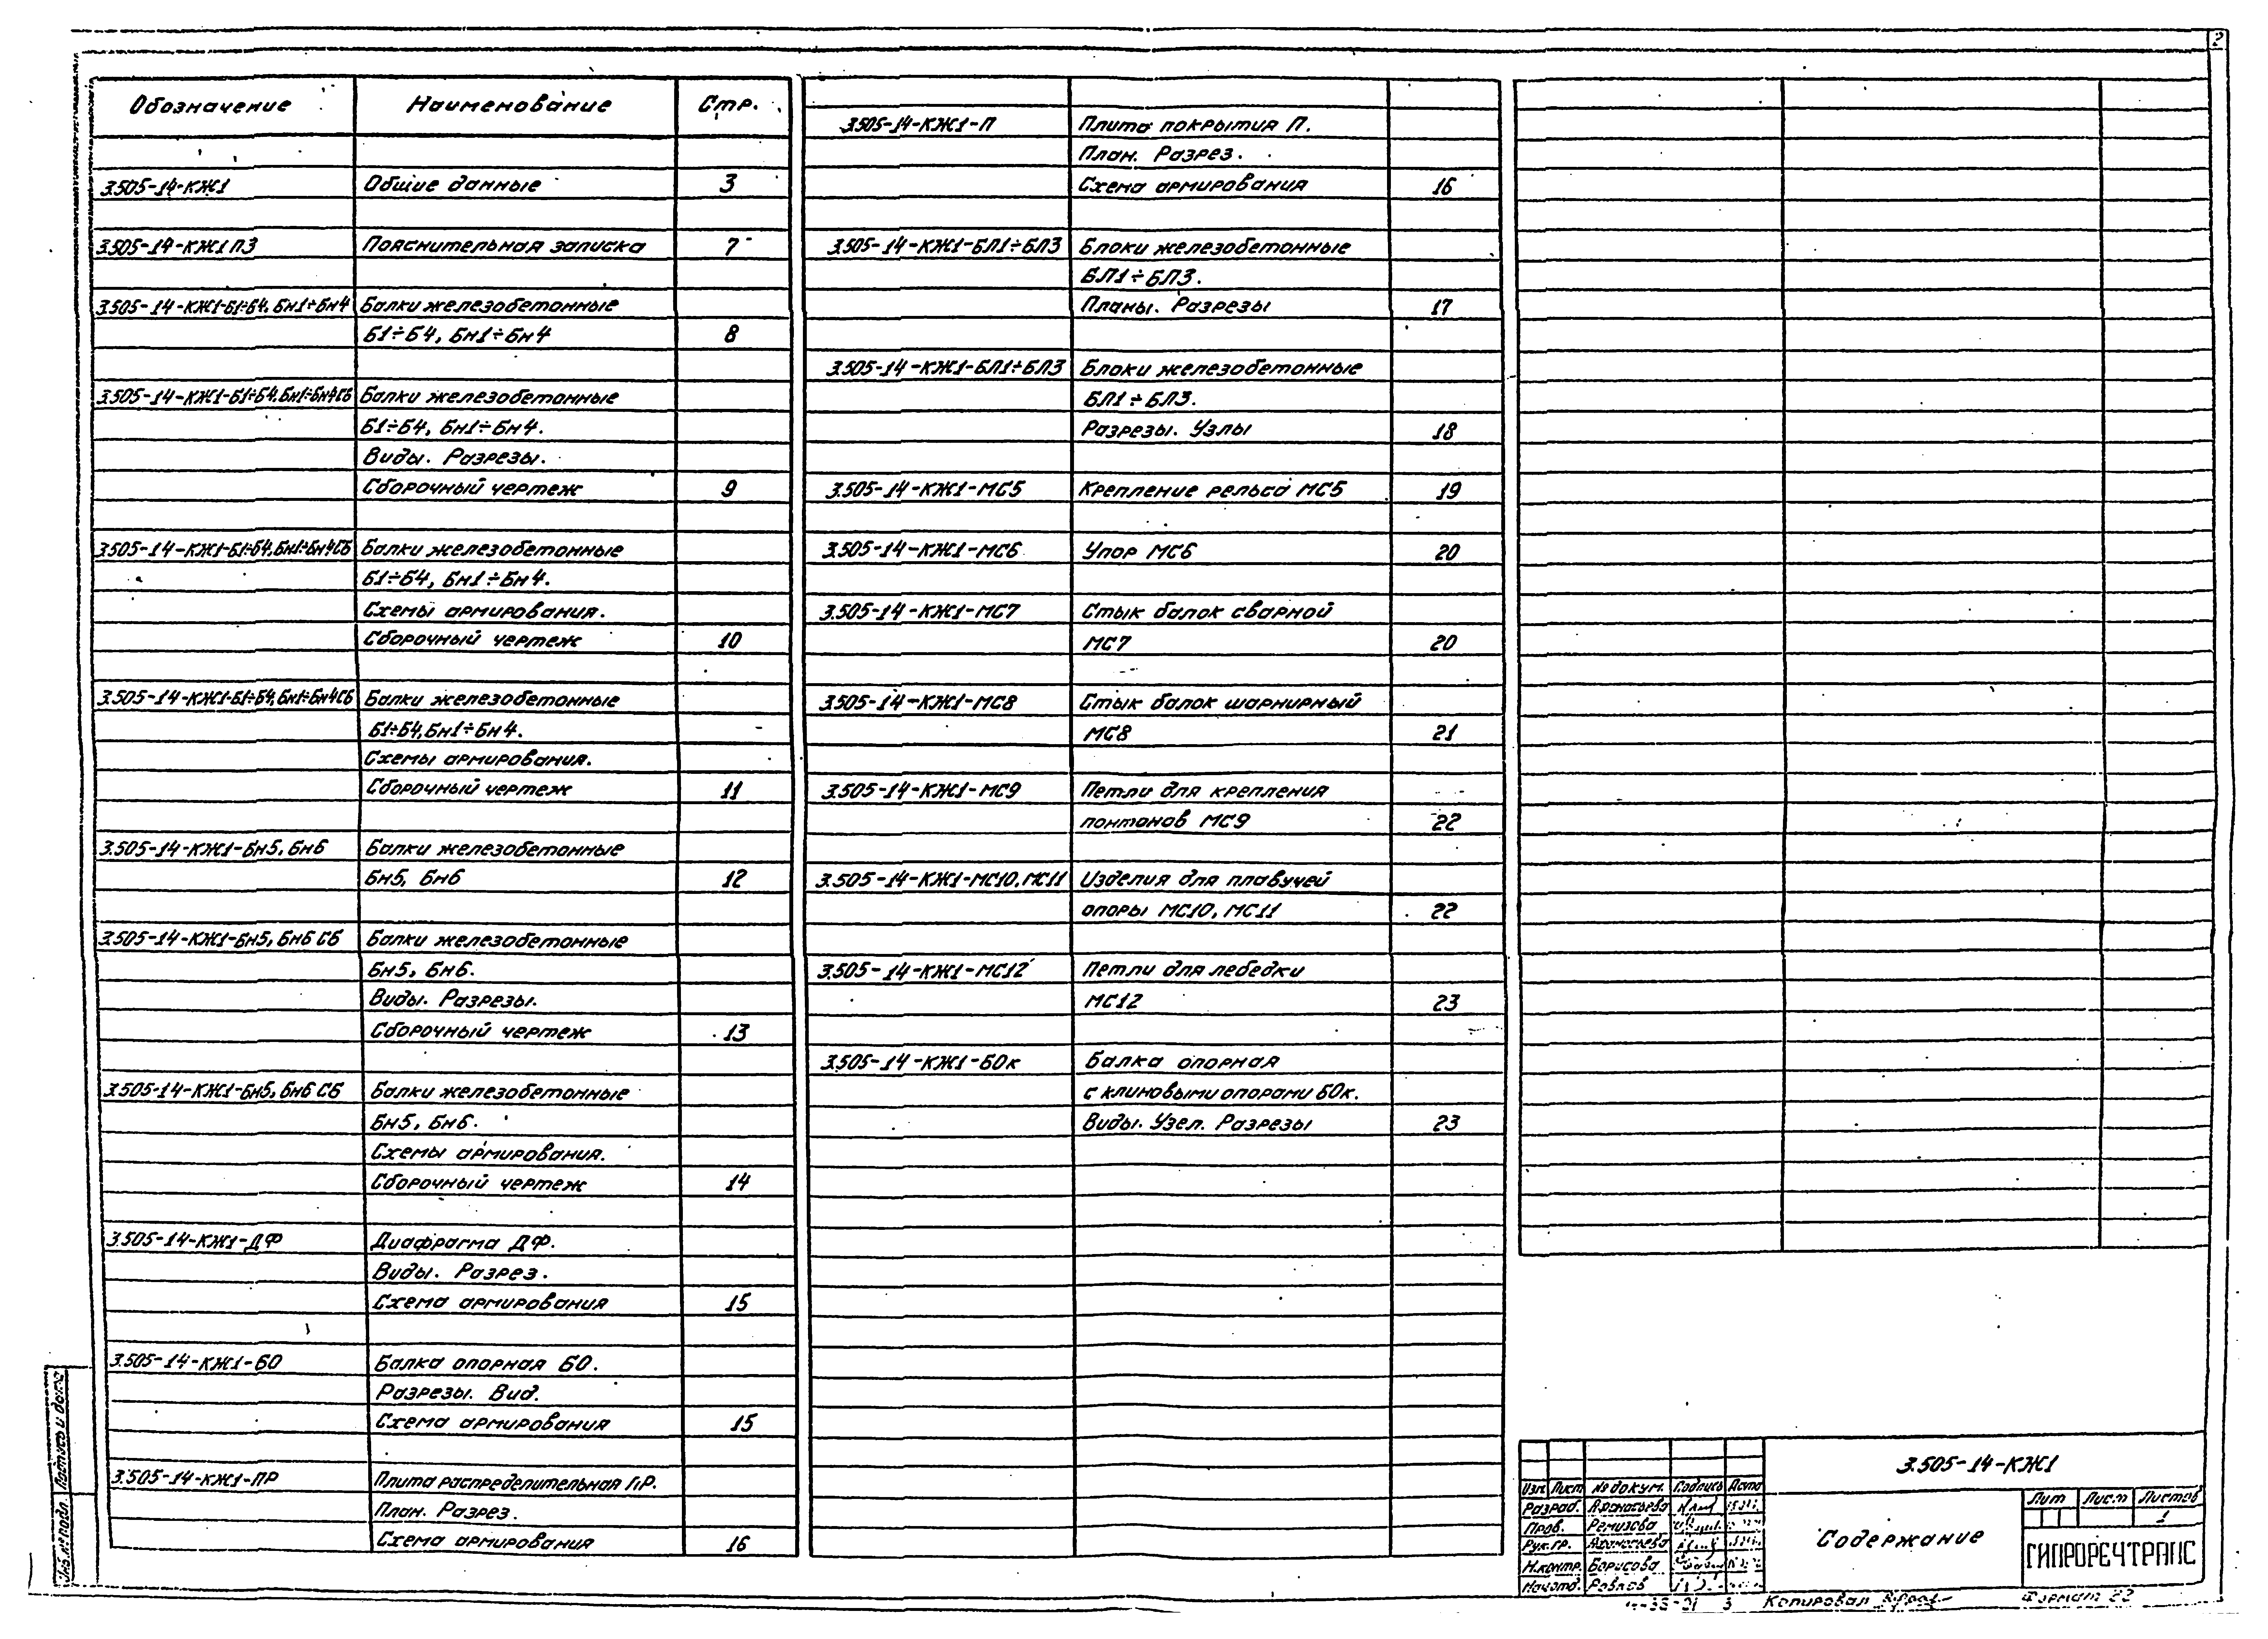 2
Обозначение Наименование Стр.
3.505-14-КЖ1 Общие данные 3
3.505-14-КЖ1 ПЗ Пояснительная записка 7
3.505-14-КЖ1-Б1÷Б4, Бн1÷Бн4 Балки железобетонные
Б1÷Б4, Бн1÷Бн4 8
3.505-14-КЖ1-Б1÷Б4, Бн1÷Бн4СБ Балки железобетонные
Б1÷Б4, Бн1÷Бн4.
Виды. Разрезы.
Сборочный чертеж 9
3.505-14-КЖ1-Б1÷Б4, Бн1÷Бн4СБ Балки железобетонные
Б1÷Б4, Бн1÷Бн4.
Схемы армирования.
Сборочный чертеж 10
3.505-14-КЖ1-Б1÷Б4, Бн1÷Бн4СБ Балки железобетонные
Б1÷Б4, Бн1÷Бн4.
Схемы армирования.
Сборочный чертеж 11
3.505-14-КЖ1-Бн5, Бн6 Балки железобетонные
Бн5, Бн6 12
3.505-14-КЖ1-Бн5, Бн6 СБ Балки железобетонные
Бн5, Бн6.
Виды. Разрезы.
Сборочный чертеж 13
3.505-14-КЖ1-Бн5, Бн6 СБ Балки железобетонные
Бн5, Бн6.
Схемы армирования.
Сборочный чертеж 14
3.505-14-КЖ1-ДФ Диафрагма ДФ.
Виды. Разрез.
Схема армирования 15
3.505-14-КЖ1-БО Балка опорная БО.
Разрезы. Вид.
Схема армирования 15
3.505-14-КЖ1-ПР Плита распределительная ПР.
План. Разрез.
Схема армирования 16
3.505-14-КЖ1-П Плита покрытия П.
План. Разрез.
Схема армирования 16
3.505-14-КЖ1-БЛ1÷БЛ3 Блоки железобетонные
БЛ1÷БЛ3.
Планы. Разрезы 17
3.505-14-КЖ1-БЛ1÷БЛ3 Блоки железобетонные
БЛ1÷БЛ3.
Разрезы. Узлы 18
3.505-14-КЖ1-МС5 Крепление рельса МС5 19
3.505-14-КЖ1-МС6 Упор МС6 20
3.505-14-КЖ1-МС7 Стык балок сварной
МС7 20
3.505-14-КЖ1-МС8 Стык балок шарнирный
МС8 21
3.505-14-КЖ1-МС9 Петли для крепления
понтонов МС9 22
3.505-14-КЖ1-МС10, МС11 Изделия для плавучей
опоры МС10, МС11 22
3.505-14-КЖ1-МС12 Петли для лебедки
МС12 23
3.505-14-КЖ1-БОк Балка опорная
с клиновыми опорами БОк.
Виды. Узел. Разрезы 23
Инв.№ подл. Подпись и дата
3.505-14-КЖ1
Изм. Лист № докум. Подпись Дата
Разраб. Афанасьева
Пров. Ремизова
Рук.гр. Афанасьева
Н.контр. Борисова
Нач.отд.
Содержание
Лит Лист Листов
1
ГИПРОРЕЧТРАНС
Копировал
Формат 22